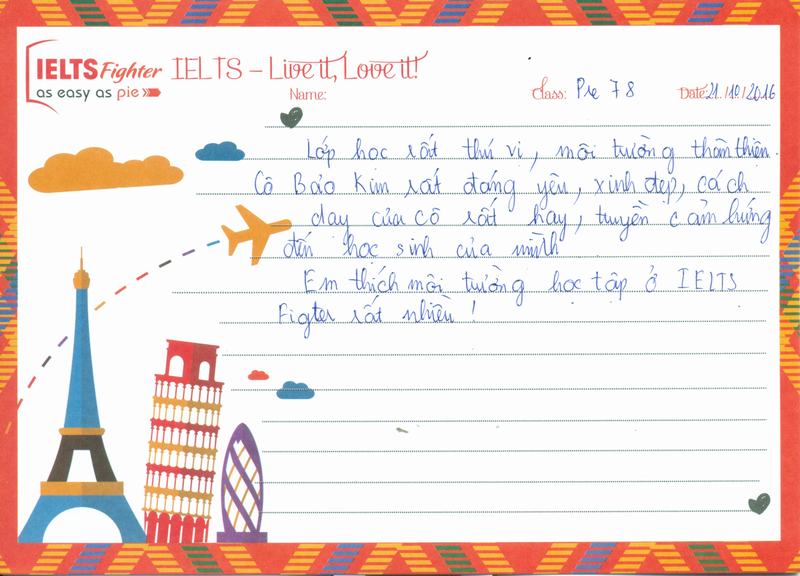 IELTS Fighter IELTS – Live it, Love it!
as easy as pie
Name: Class: Pre 78 Date: 21/10/2016
Lớp học rất thú vị, môi tường thân thiện.
Cô Bảo Kim rất đáng yêu, xinh đẹp, cách
dạy của cô rất hay, tuyền cảm hứng
đến học sinh của mình
Em thích môi tường học tập ở IELTS
Figter rất nhiều !